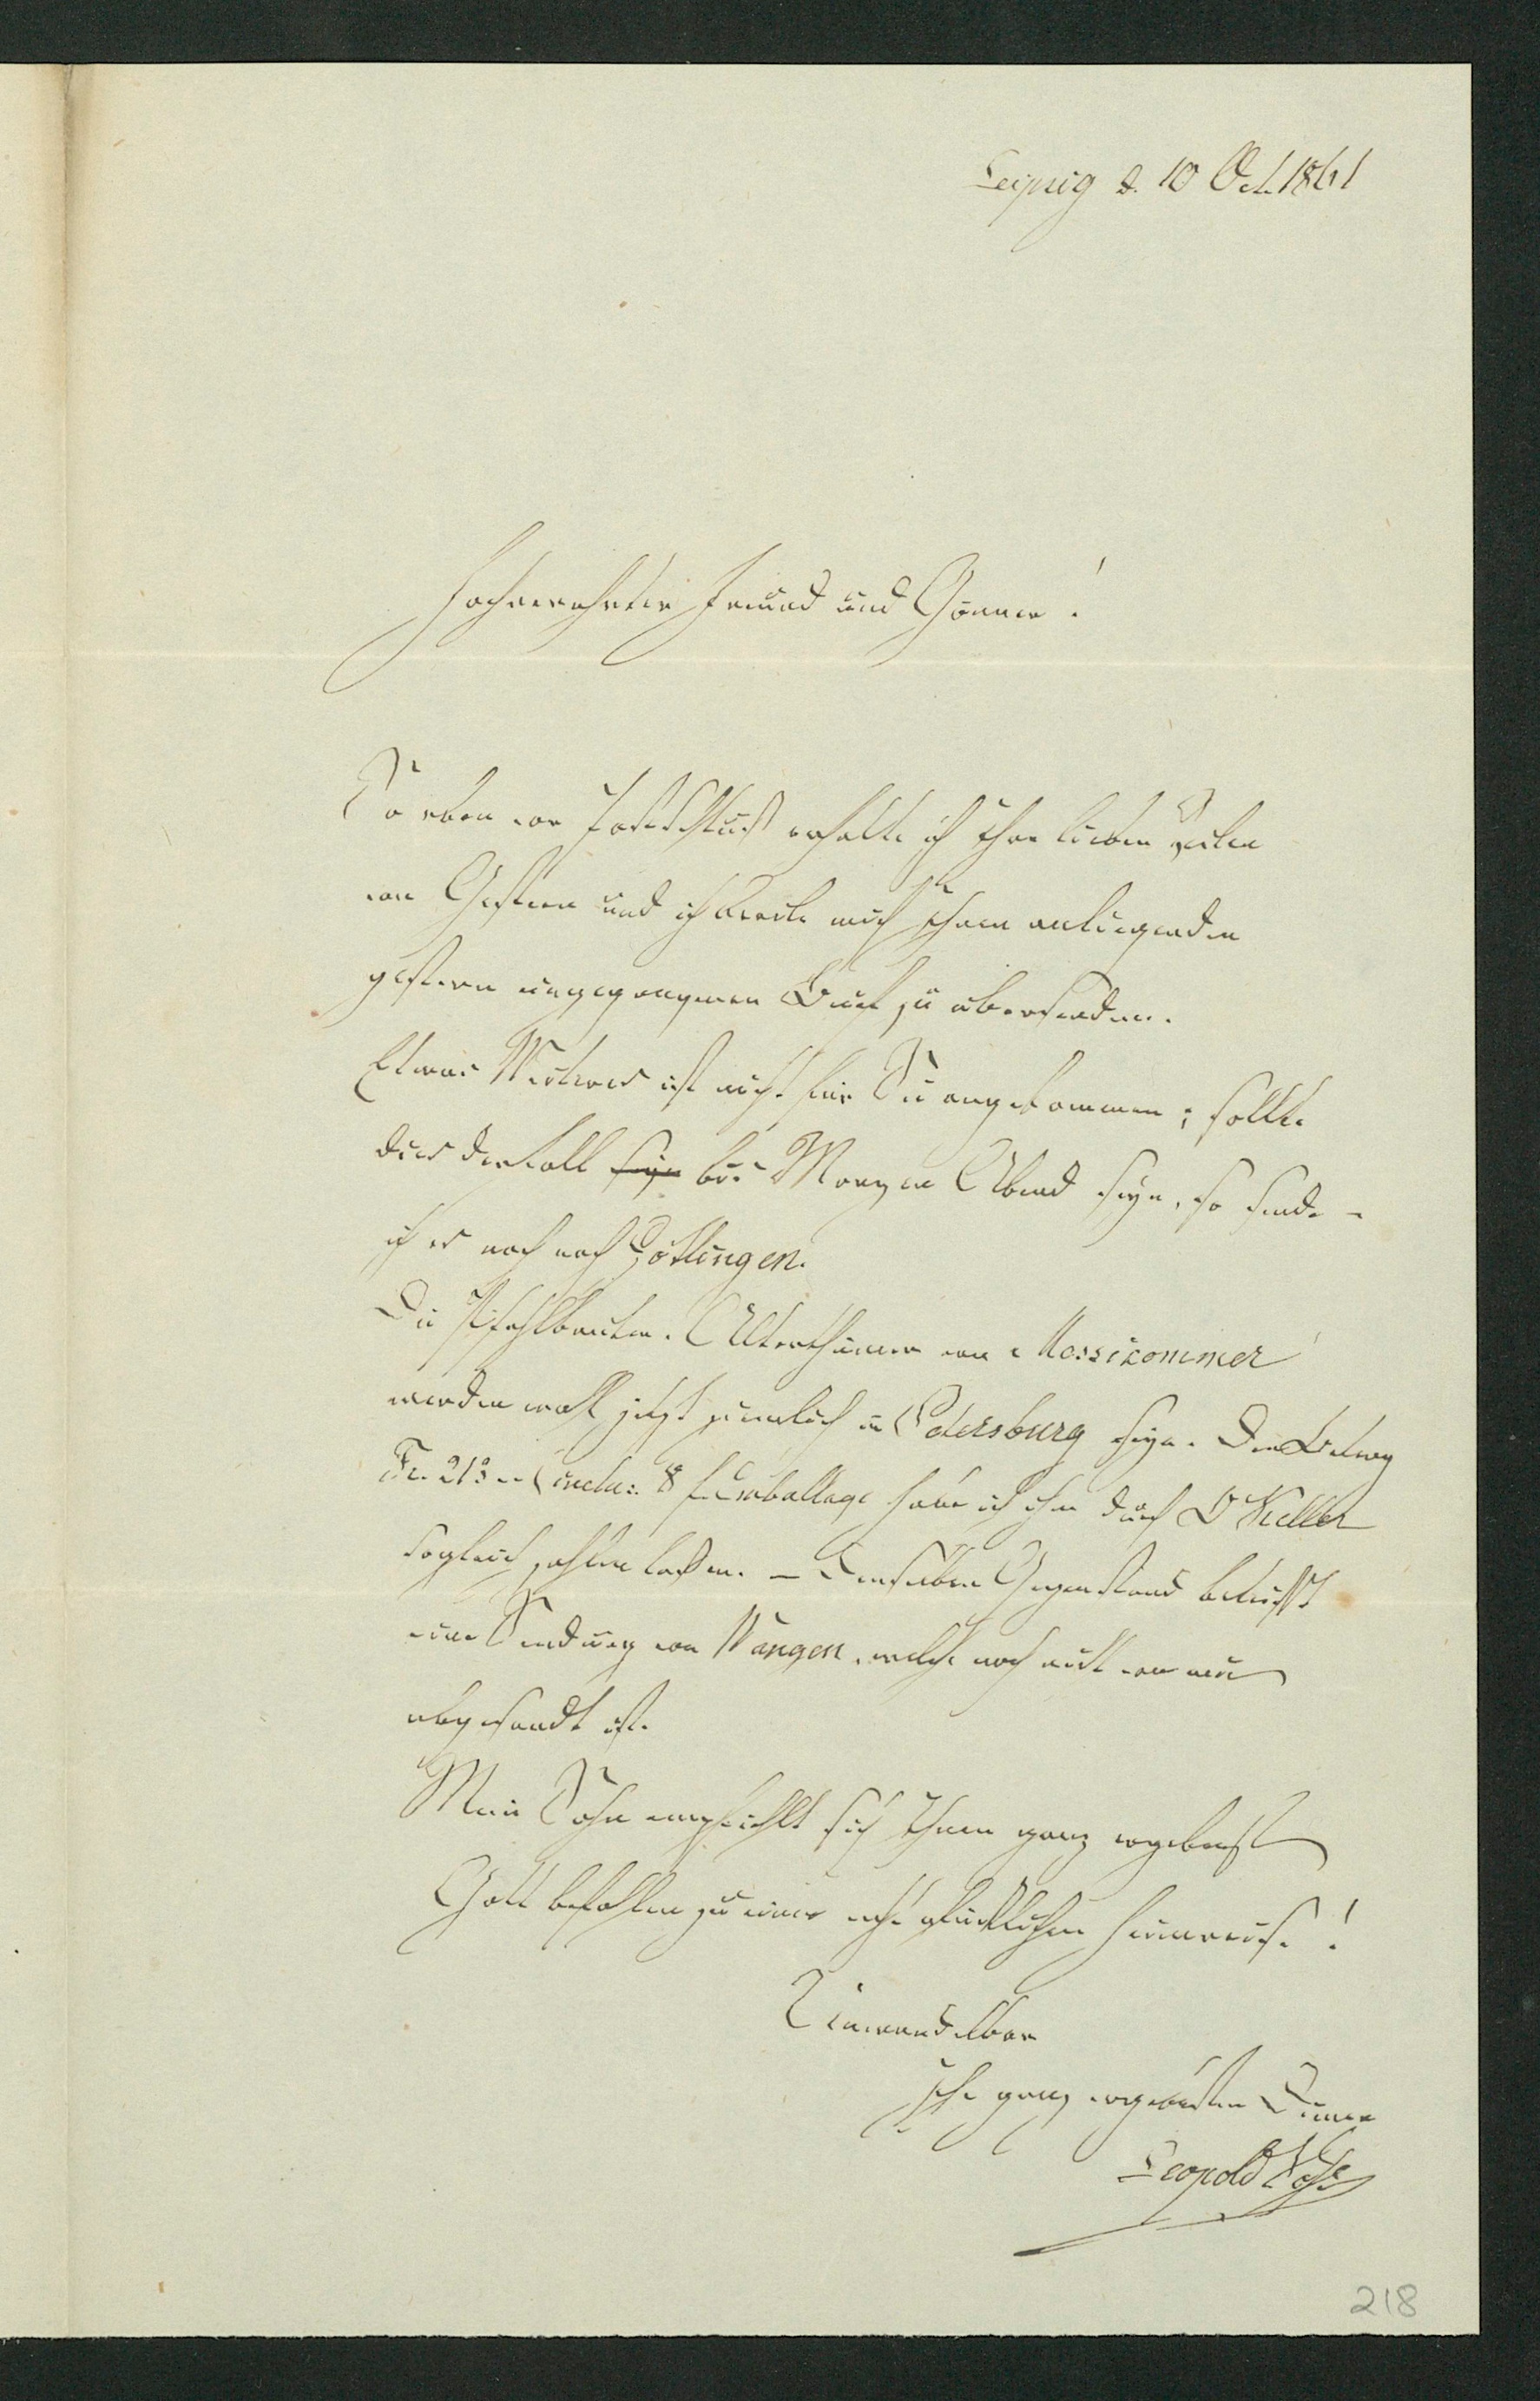 Leipzig d. 10 Oct. 1861
Hochverehrter Freund und Gönner!
So eben vor Postschluß erhalte ich Ihre lieben Zeilen
von Gestern und ich beeile mich Ihnen anliegenden
gestern eingegangenen Brief zu übersenden.
Etwas Weiteres ist nicht für Sie angekommen; sollte
dies der Fall seyn bis Morgen Abend seyn, so sende
ich es noch nach Göttingen.
Die Pfahlbauten-Alterthümer von Messicommer
werden wohl jetzt ziemlich in Petersburg seyn. Den Betrag
Fr. 213 – (inclus. 8 f. Emballage habe ich ihm durch D Keller
sogleich zahlen laßen. – Denselben Gegenstand betrifft
eine Sendung von Wangen, welche noch nicht von mir
abgesandt ist.
Mein Sohn empfiehlt sich Ihnen ganz ergebenst
Gott befohlen zu einer recht glücklichen Heimreise!
Unwandelbar
Ihr ganz ergebenster Diener
Leopold Voß
218